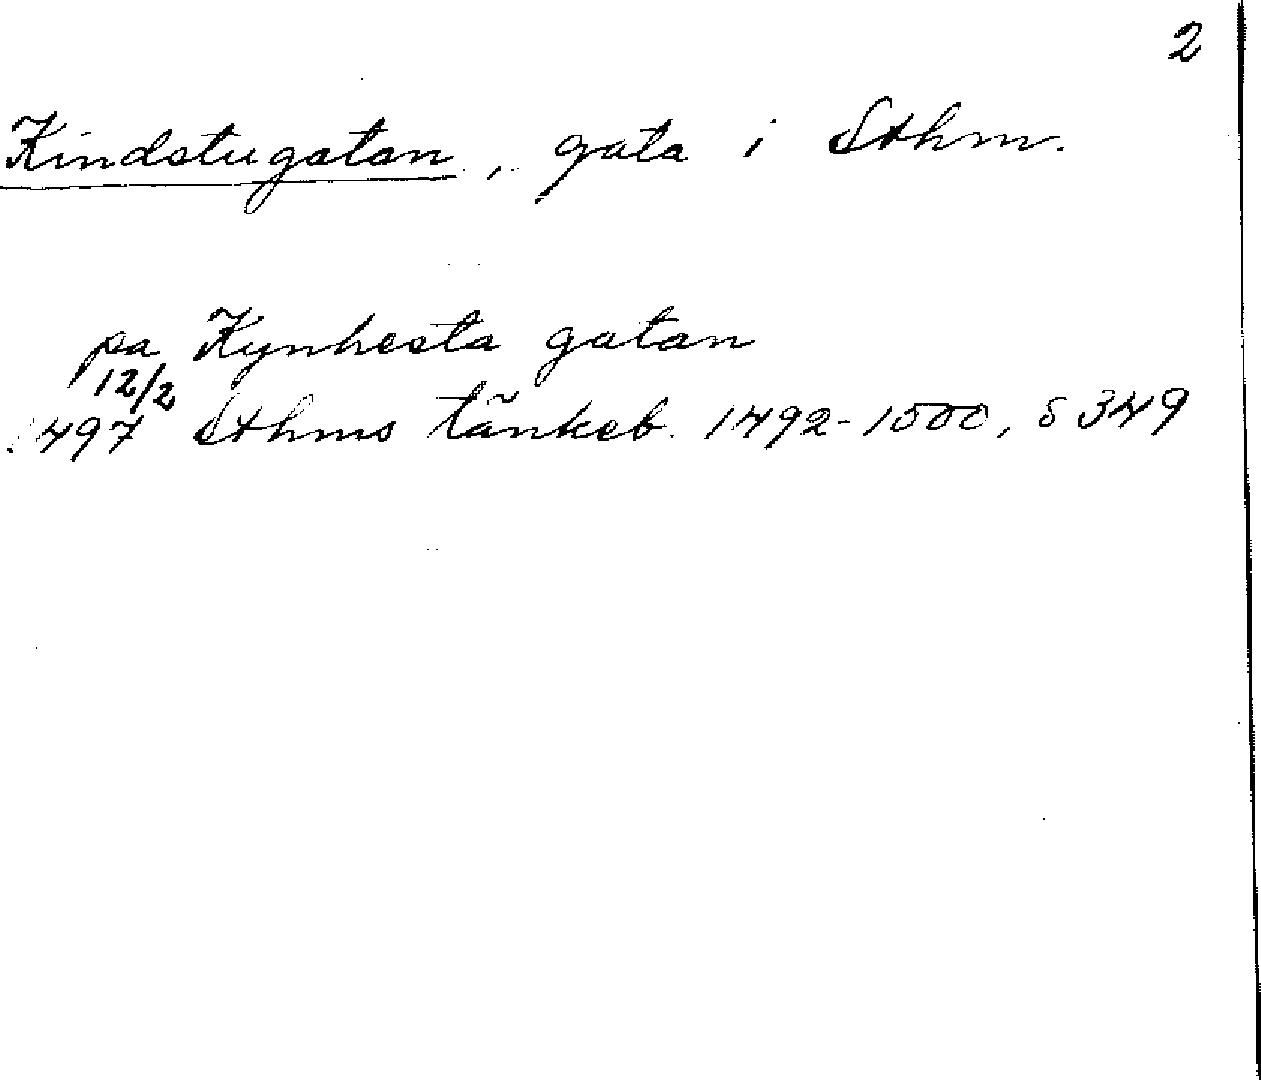 2
Kindstugatan, gata i Sthm.
pa Kynhesta gatan
12/2
1497 Sthms tänkeb. 1492-1500, s 349